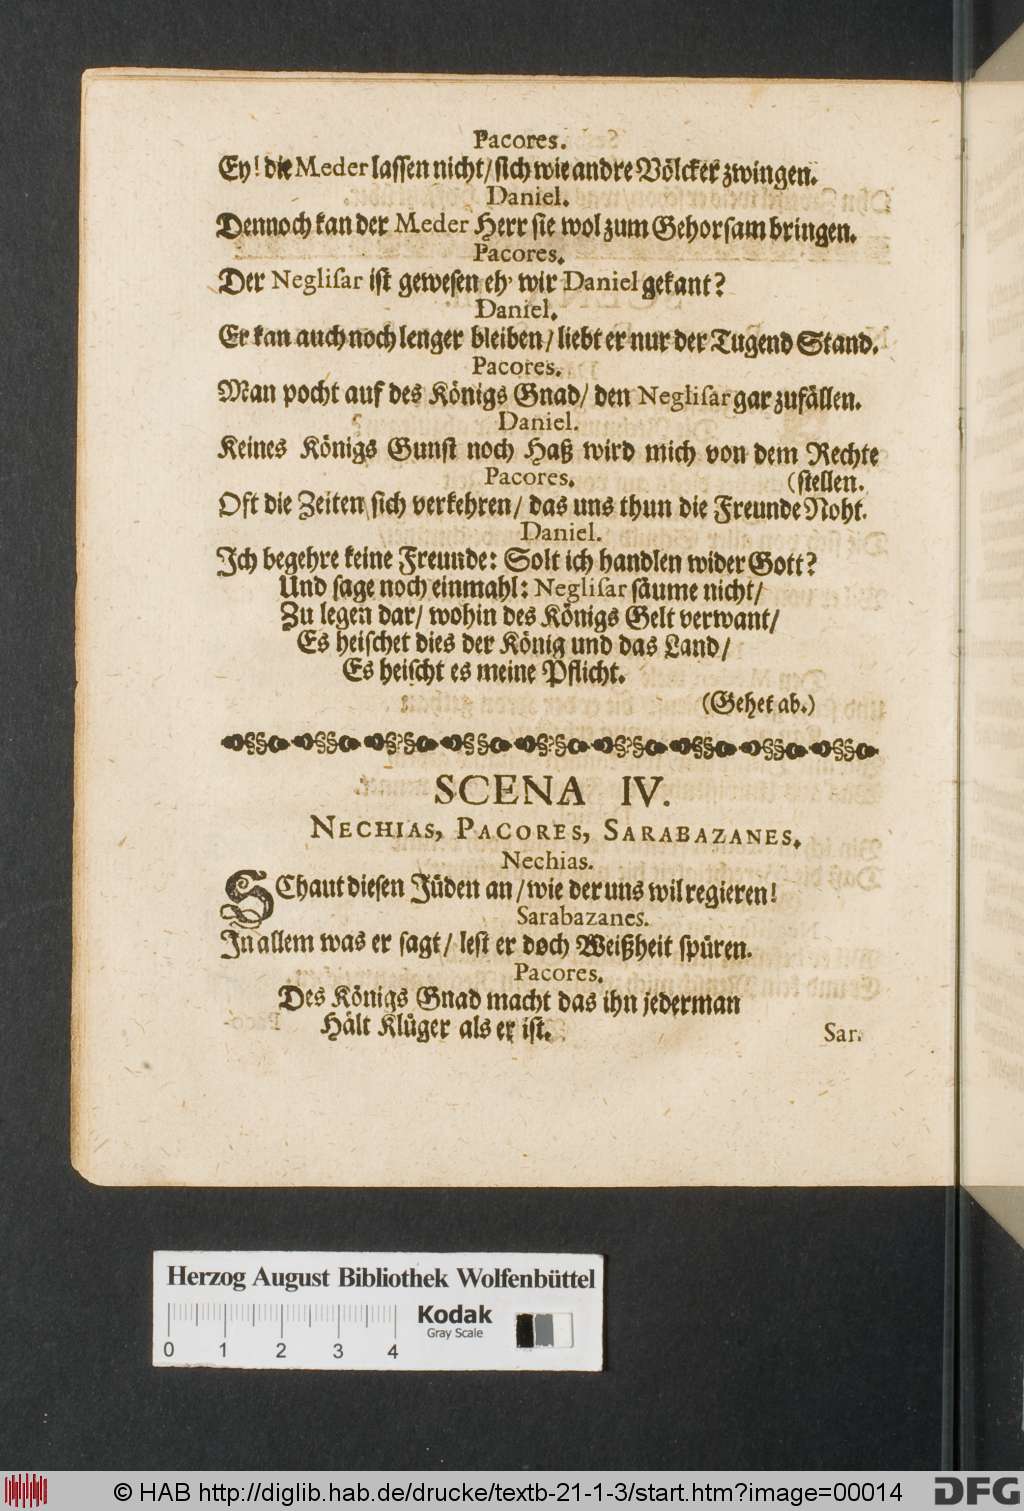 Pacores.
Ey! die Meder lassen nicht/ sich wie andre Völcker zwingen.
Daniel.
Dennoch kan der Meder Herr sie wol zum Gehorsam bringen.
Pacores.
Der Neglisar ist gewesen eh' wir Daniel gekant?
Daniel.
Er kan auch noch lenger bleiben/ liebt er nur der Tugend Stand.
Pacores.
Man pocht auf des Königs Gnad/ den Neglisar gar zufällen.
Daniel.
Keines Königs Gunst noch Haß wird mich von dem Rechte
Pacores. (stellen.
Oft die Zeiten sich verkehren/ das uns thun die Freunde Noht.
Daniel.
Ich begehre keine Freunde: Solt ich handlen wider Gott?
Und sage noch einmahl: Neglisar säume nicht/
Zu legen dar/ wohin des Königs Gelt verwant/
Es heischet dies der König und das Land/
Es heischt es meine Pflicht.
(Gehet ab.)
SCENA IV.
NECHIAS, PACORES, SARABAZANES.
Nechias.
SChaut diesen Jüden an/ wie der uns wil regieren!
Sarabazanes.
In allem was er sagt/ lest er doch Weißheit spüren.
Pacores.
Des Königs Gnad macht das ihn jederman
Hält Klüger als er ist.
Sar.
Herzog August Bibliothek Wolfenbüttel
Kodak
Gray Scale
0 1 2 3 4
© HAB http://diglib.hab.de/drucke/textb-21-1-3/start.htm?image=00014
DFG